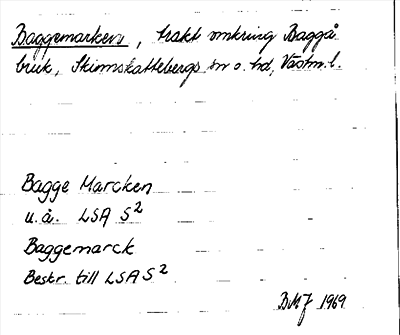 Baggemarken, trakt omkring Baggå
bruk, Skinnskattebergs sn o. hd, Västm. l.
Bagge Marcken
u.å. LSA S²
Baggemarck
Beskr. till LSA S²
BMJ 1969